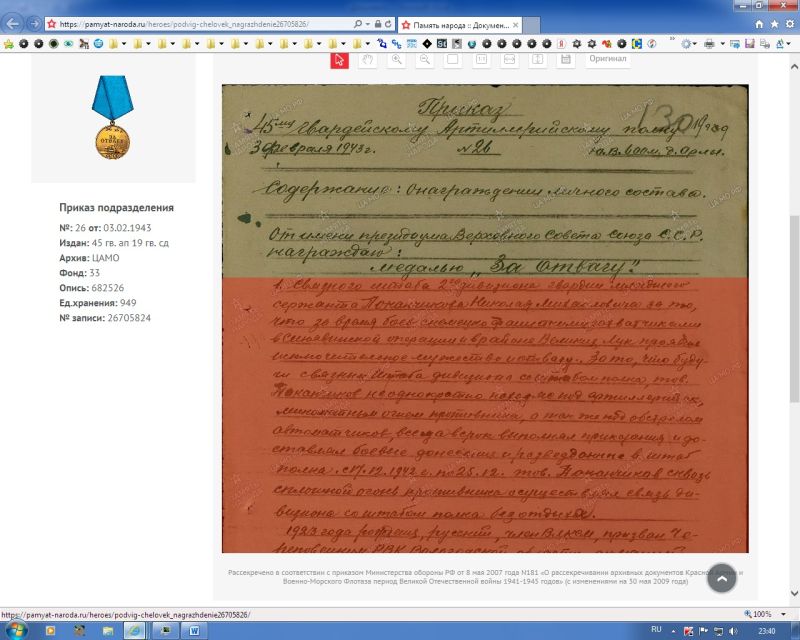 https://pamyat-naroda.ru/heroes/podvig-chelovek_nagrazhdenie26705824/
Память народа :: Докумен...
Оригинал
ЗА
ОТВАГУ
Приказ подразделения
№: 26 от: 03.02.1943
Издан: 45 гв. ап 19 гв. сд
Архив: ЦАМО
Фонд: 33
Опись: 682526
Ед.хранения: 949
№ записи: 26705824
Приказ
45му Гвардейскому Артиллерийскому полку
3 февраля 1943 г. №26
Содержание: О награждении личного состава.
От имени президиума Верховного Совета Союза С.С.Р.
награждаю:
медалью „За отвагу"
1. Связного штаба 2го дивизиона гвардии младшего
сержанта Поканчикова Николая Михайловича за то,
что за время боев с немецко фашистскими захватчиками
в Синявинской операции и в районе Великих Лук проявил
исключительное мужество и отвагу. За то, что буду-
чи связным штаба дивизиона со штабом полка тов.
Поканчиков неоднократно находясь под артиллерийск,
минометным огнем противника, а так же под обстрелом
автоматчиков, всегда в срок выполнял приказания и до-
ставлял боевые донесения и разведданные в штаб
полка. с 17.12.1942 г. по 25.12. тов. Поканчиков сквозь
сплошной огонь противника осуществлял связь ди-
визиона со штабом полка без отдыха.
1923 года рождения, русский, член ВЛКСМ, призван Че-
реповецким РВК Вологодской области
Рассекречено в соответствии с приказом Министерства обороны РФ от 8 мая 2007 года N181 «О рассекречивании архивных документов Красной Армии и
Военно-Морского Флота за период Великой Отечественной войны 1941-1945 годов» (с изменениями на 30 мая 2009 года)
https://pamyat-naroda.ru/heroes/podvig-chelovek_nagrazhdenie26705824/
100%
RU
23:40